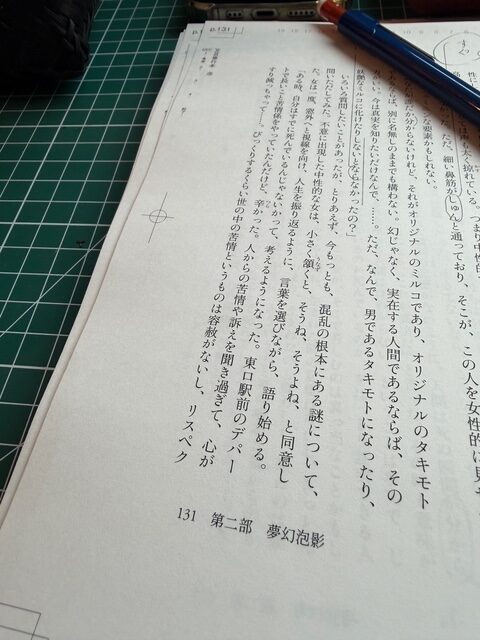 p.131
性に
も太く掠れている。つまり中性的
ただ、細い鼻筋がしゅんと通っており、そこが、この人を女性的に見せ
な要素かもしれない。
分からないけれど、それがオリジナルのミルコであり、オリジナルのタキモト
あるならば、別に名無しのままでも構わない。幻じゃなく、実在する人間であるならば、その
今は真実を知りたいだけなんで、……。ただ、なんで、男であるタキモトになったり、
妖艶なミルコに化けたりしないとならなかったの?」
いろいろ質問したいことがあったが、とりあえず、今もっとも、混乱の根本にある謎について、
問いただしてみた。不意に出現した中性的な女は、小さく頷くと、そうね、そうよね、と同意し
た。女は一度、窓外へと視線を向け、人生を振り返るように、言葉を選びながら、語り始める。
「ある時、自分はすでに死んでいるんじゃないかって、考えるようになった。東口駅前のデパー
トで長いこと苦情係をやっていたんだけど、辛かった。人からの苦情や訴えを聞き過ぎて、心が
すり減っちゃって――。びっくりするくらい世の中の苦情というものは容赦がないし、リスペク
131 第二部 夢幻泡影